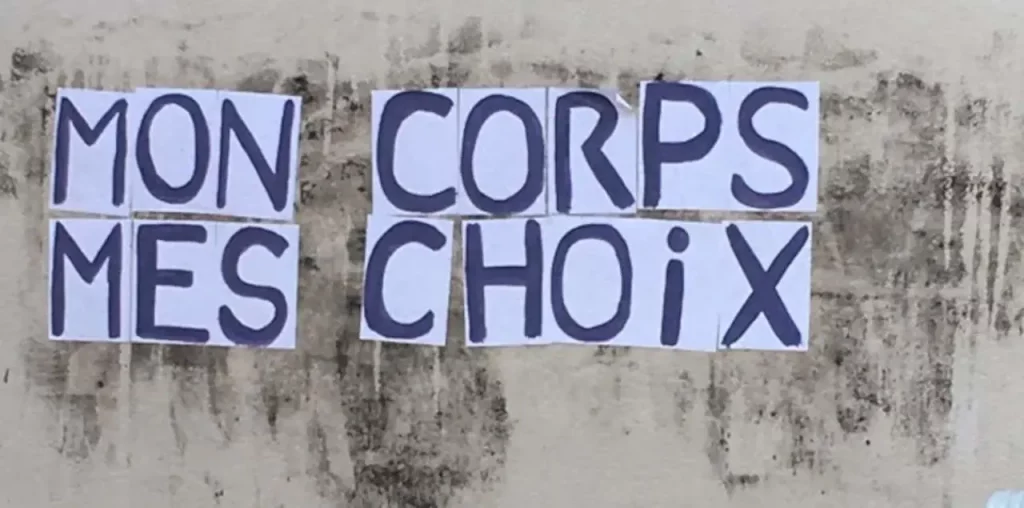 MON CORPS
MES CHOiX